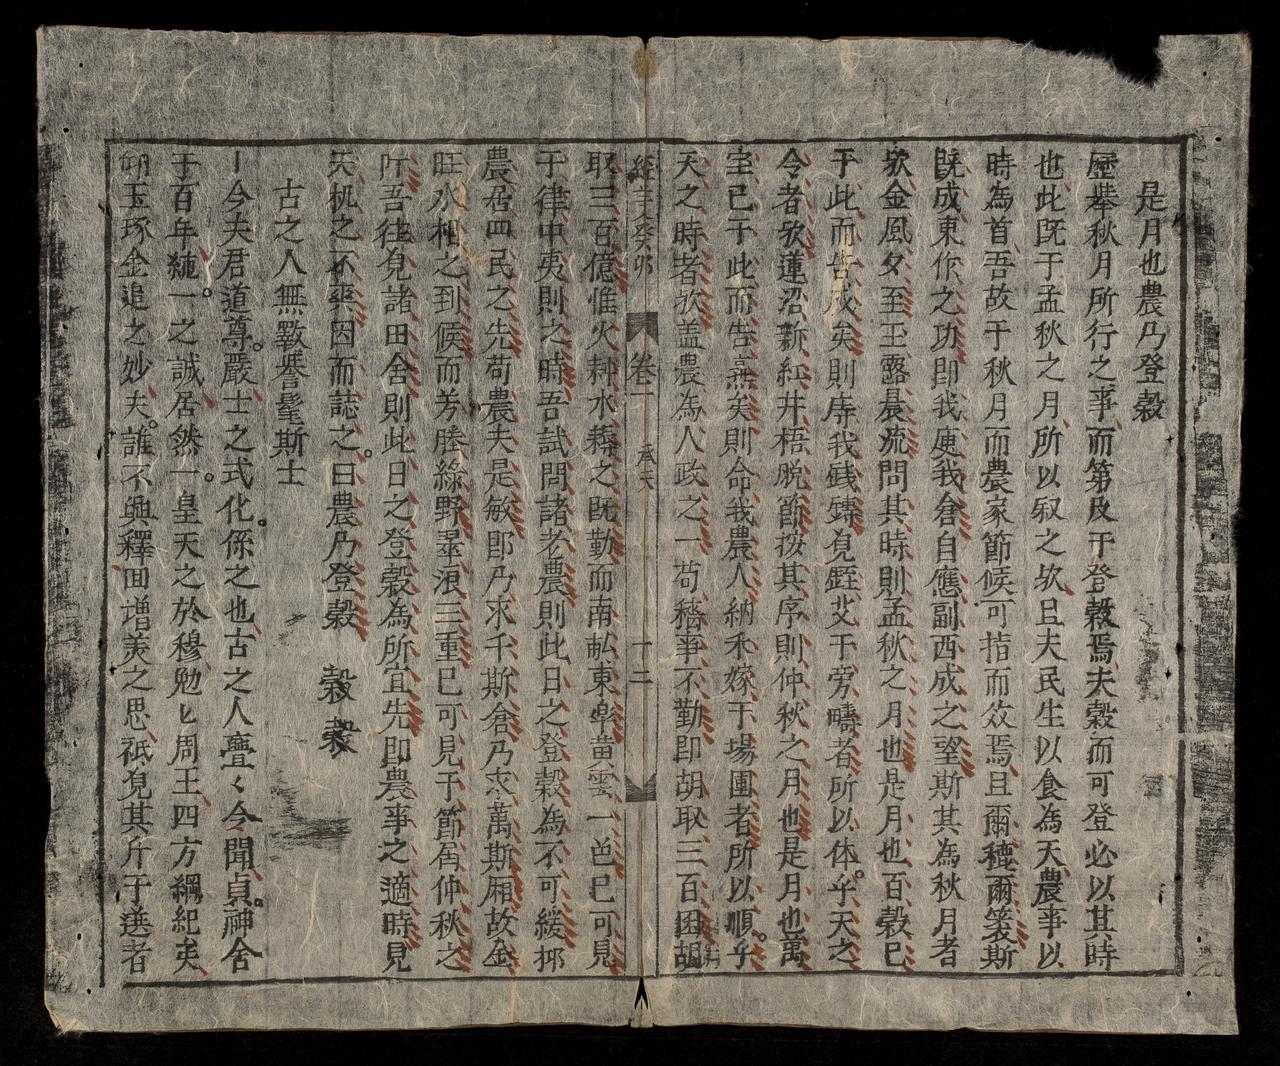 是月也農乃登穀
歷舉秋月所行之事而第及于登穀焉夫穀而可登必以其時
也此既于孟秋之月所以叙之欤且夫民生以食為天農事以
時為首吾故于秋月而農家節候可指而效焉且爾穮爾蓑斯
既成東作之功即我庾我倉自應副西成之望斯其為秋月者
欤金風夕至玉露晨流問其時則孟秋之月也是月也百穀已
于此而告成矣則庤我錢鎛覓銍艾于旁疇者所以体乎天之
令者欤蓮沼新紅井梧脫節按其序則仲秋之月也是月也萬
宝已于此而告烝矣則命我農人納禾嫁于場圃者所以順乎
天之時者欤盖農為人政之一苟穡事不勤即胡取三百囷胡
經義癸卯 卷一 承天 十二
取三百億惟火耕水耨之既勤而南畝東皋黄雲一色已可見
于律中夷則之時吾試問諸老農則此日之登穀為不可緩抑
農居四民之先苟農夫是敏即乃求千斯倉乃求萬斯廂故金
旺水相之到候而芳塍綠野墨浪三重已可見于節届仲秋之
所吾徃覓諸田舍則此日之登穀為所宜先即農事之適時見
天机之不爽因而誌之曰農乃登穀 穀穀
古之人無斁譽髦斯士
今夫君道尊嚴士之式化係之也古之人亹々今聞貞神舍
于百年純一之誠居然一皇天之於穆勉匕周王四方綱紀夹
卬玉琢金追之妙夫誰不興釋回增美之思祇覓其斤于選者